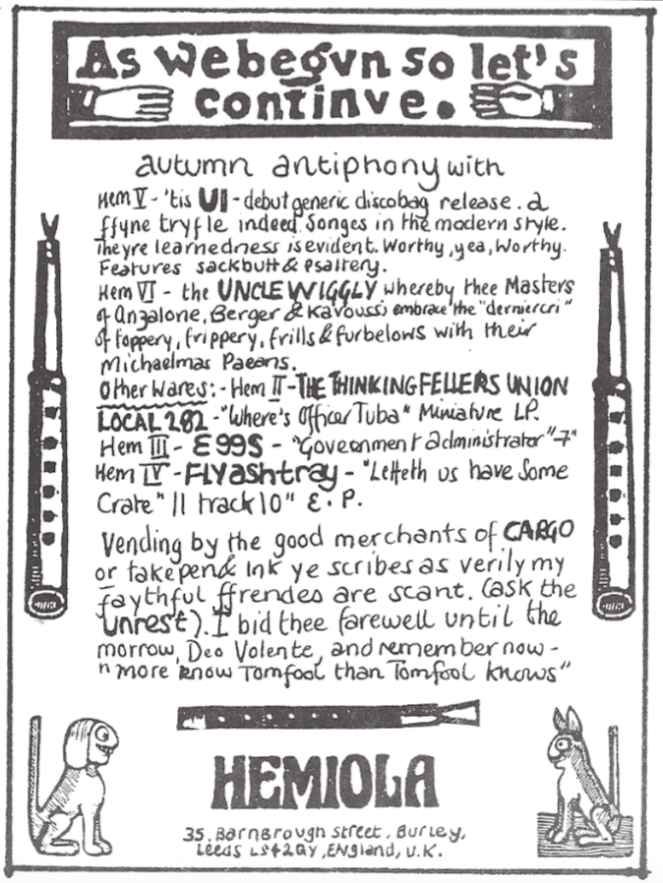 As we begvn so let's
continve.
autumn antiphony with
Hem V - 'tis UI - debut generic discobag release. a
ffyne tryfle indeed Songes in the modern style.
Theyre learnedness is evident. Worthy, yea, Worthy.
Features sackbutt & psaltery.
Hem VI - the UNCLE WIGGLY whereby thee Masters
of Anzalone, Berger & Kavoussi embrace the "derniercri"
of foppery, frippery, frills & furbelows with their
Michaelmas Paeans.
Other Wares: - Hem II - THE THINKING FELLERS UNION
LOCAL 282 - "Where's Officer Tuba" Miniature LP.
Hem III - E99S - "Government administrator" 7"
Hem IV - FLY ashtray - "Letteth us have Some
Crate" 11 track 10" E.P.
Vending by the good merchants of CARGO
or take pen & Ink ye scribes as verily my
faythful ffrendes are scant. (ask the
Unrest). I bid thee farewell until the
morrow, Deo Volente, and remember now -
"more know Tomfool than Tomfool knows"
HEMIOLA
35, Barnbrough Street, Burley,
Leeds LS4 2QY, England, U.K.